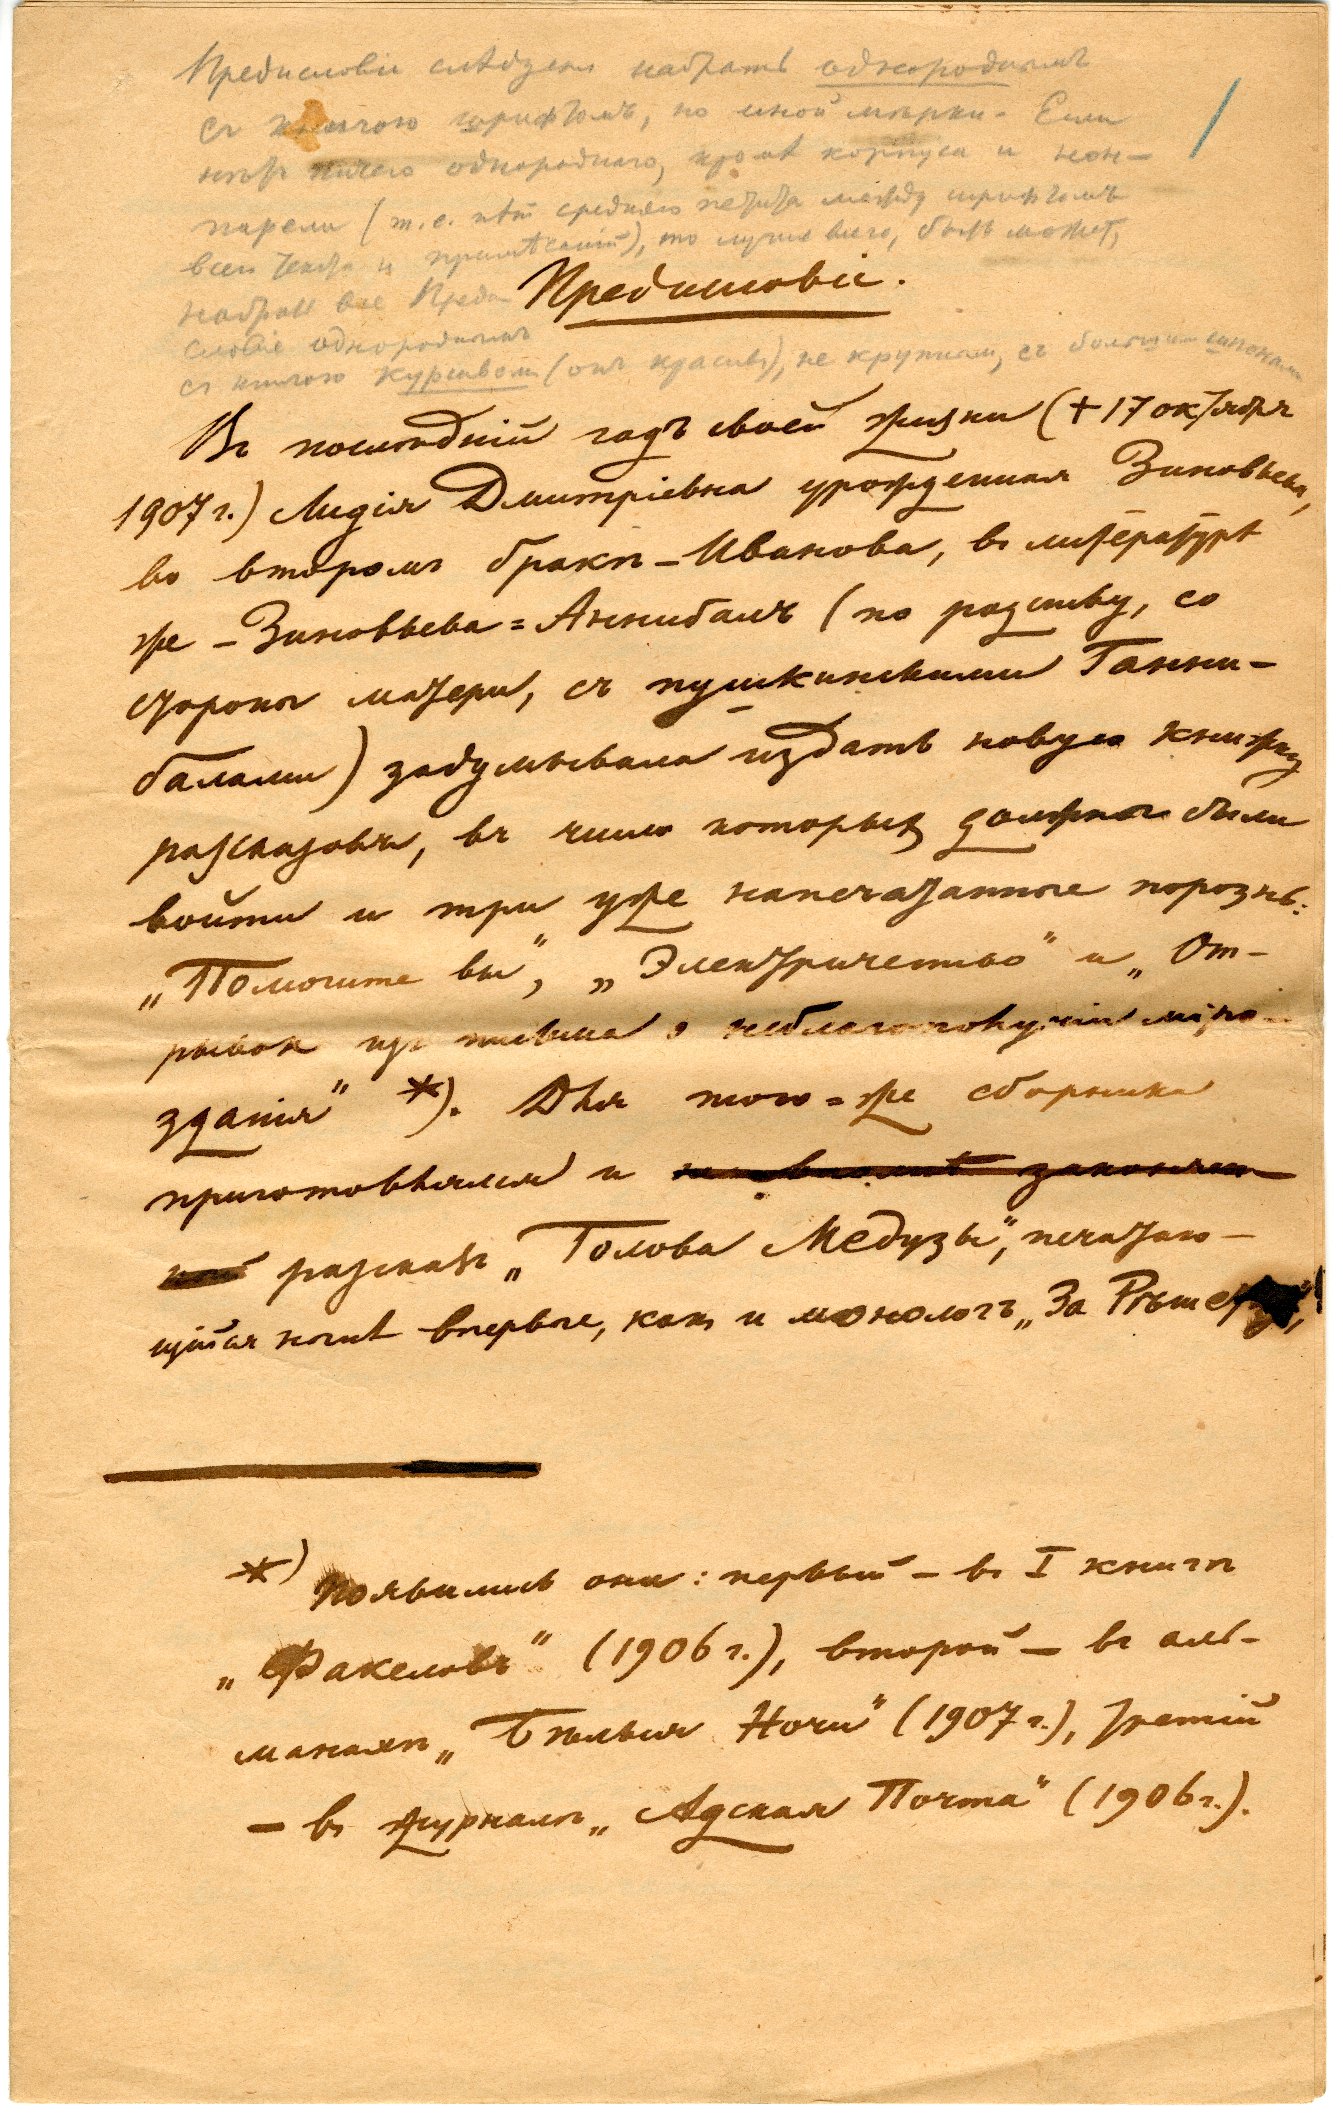 Предисловіе слѣдуетъ набрать однороднымъ
съ книгою шрифтомъ, но иной мѣрки. Если
нѣтъ ничего однороднаго, кромѣ корпуса и нон-
парели (т.е. нѣтъ средняго петита между шрифтомъ
всего текста и примѣчаній), то лучше всего, быть можетъ,
набрать все Преди-
словіе однороднымъ
съ книгою курсивомъ (онъ красивъ), не крупнымъ, съ большими шпонами
1
Предисловіе.
Въ послѣдній годъ своей жизни († 17 октября
1907 г.) Лидія Дмитріевна урожденная Зиновьева,
во второмъ бракѣ – Иванова, въ литературѣ
же – Зиновьева=Аннибалъ (по родству, со
стороны матери, съ пушкинскими Ганни-
балами) задумывала издать новую книжку
разсказовъ, въ число которыхъ должны были
войти и три уже напечатанные порознь:
„Помогите вы“, „Электричество“ и „От-
рывок изъ письма о неблагополучіи міро-
зданія“ *). Для того=же сборника
приготовлялся и
разсказъ „Голова Медузы“, печатаю-
щійся нынѣ впервые, какъ и монологъ „За Рѣшетку“,
*) Появились они: первый – въ I книгѣ
„Факеловъ“ (1906 г.), второй – въ аль-
манахѣ „Бѣлыя Ночи“ (1907 г.), третій
– въ журналѣ „Адская Почта“ (1906 г.).